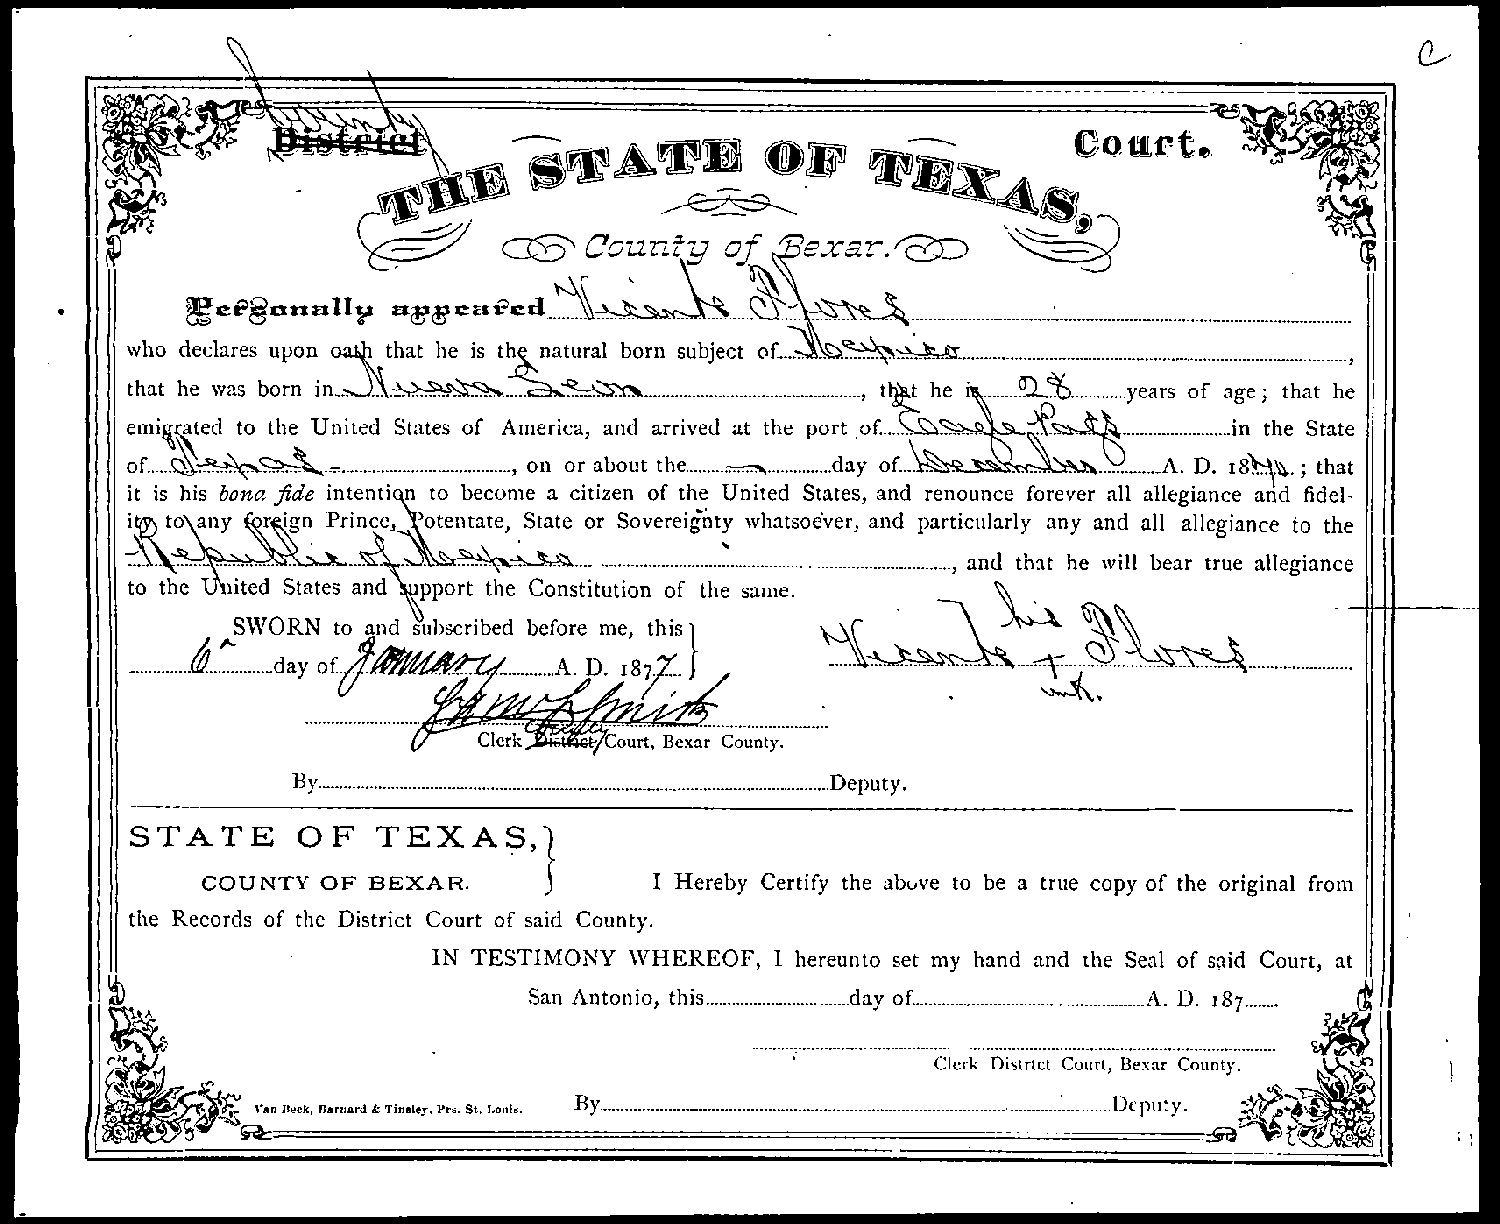 C
County
District Court.
THE STATE OF TEXAS,
County of Bexar.
Personally appeared Vicente Flores
who declares upon oath that he is the natural born subject of Mexico,
that he was born in Nueva Leon, that he is 28 years of age; that he
emigrated to the United States of America, and arrived at the port of Eagle Pass in the State
of Texas -, on or about the — day of December A. D. 18; that
it is his bona fide intention to become a citizen of the United States, and renounce forever all allegiance and fidel-
ity to any foreign Prince, Potentate, State or Sovereignty whatsoever, and particularly any and all allegiance to the
Republic of Mexico, and that he will bear true allegiance
to the United States and support the Constitution of the same.
SWORN to and subscribed before me, this
6 day of January A. D. 1877.
his
Vicente + Flores
mk.
Smith
County
Clerk District Court, Bexar County.
By Deputy.
STATE OF TEXAS,
COUNTY OF BEXAR. I Hereby Certify the above to be a true copy of the original from
the Records of the District Court of said County.
IN TESTIMONY WHEREOF, I hereunto set my hand and the Seal of said Court, at
San Antonio, this day of A. D. 187
Clerk District Court, Bexar County.
Van Beek, Barnard & Tinsley, Prs. St. Louis. By Deputy.